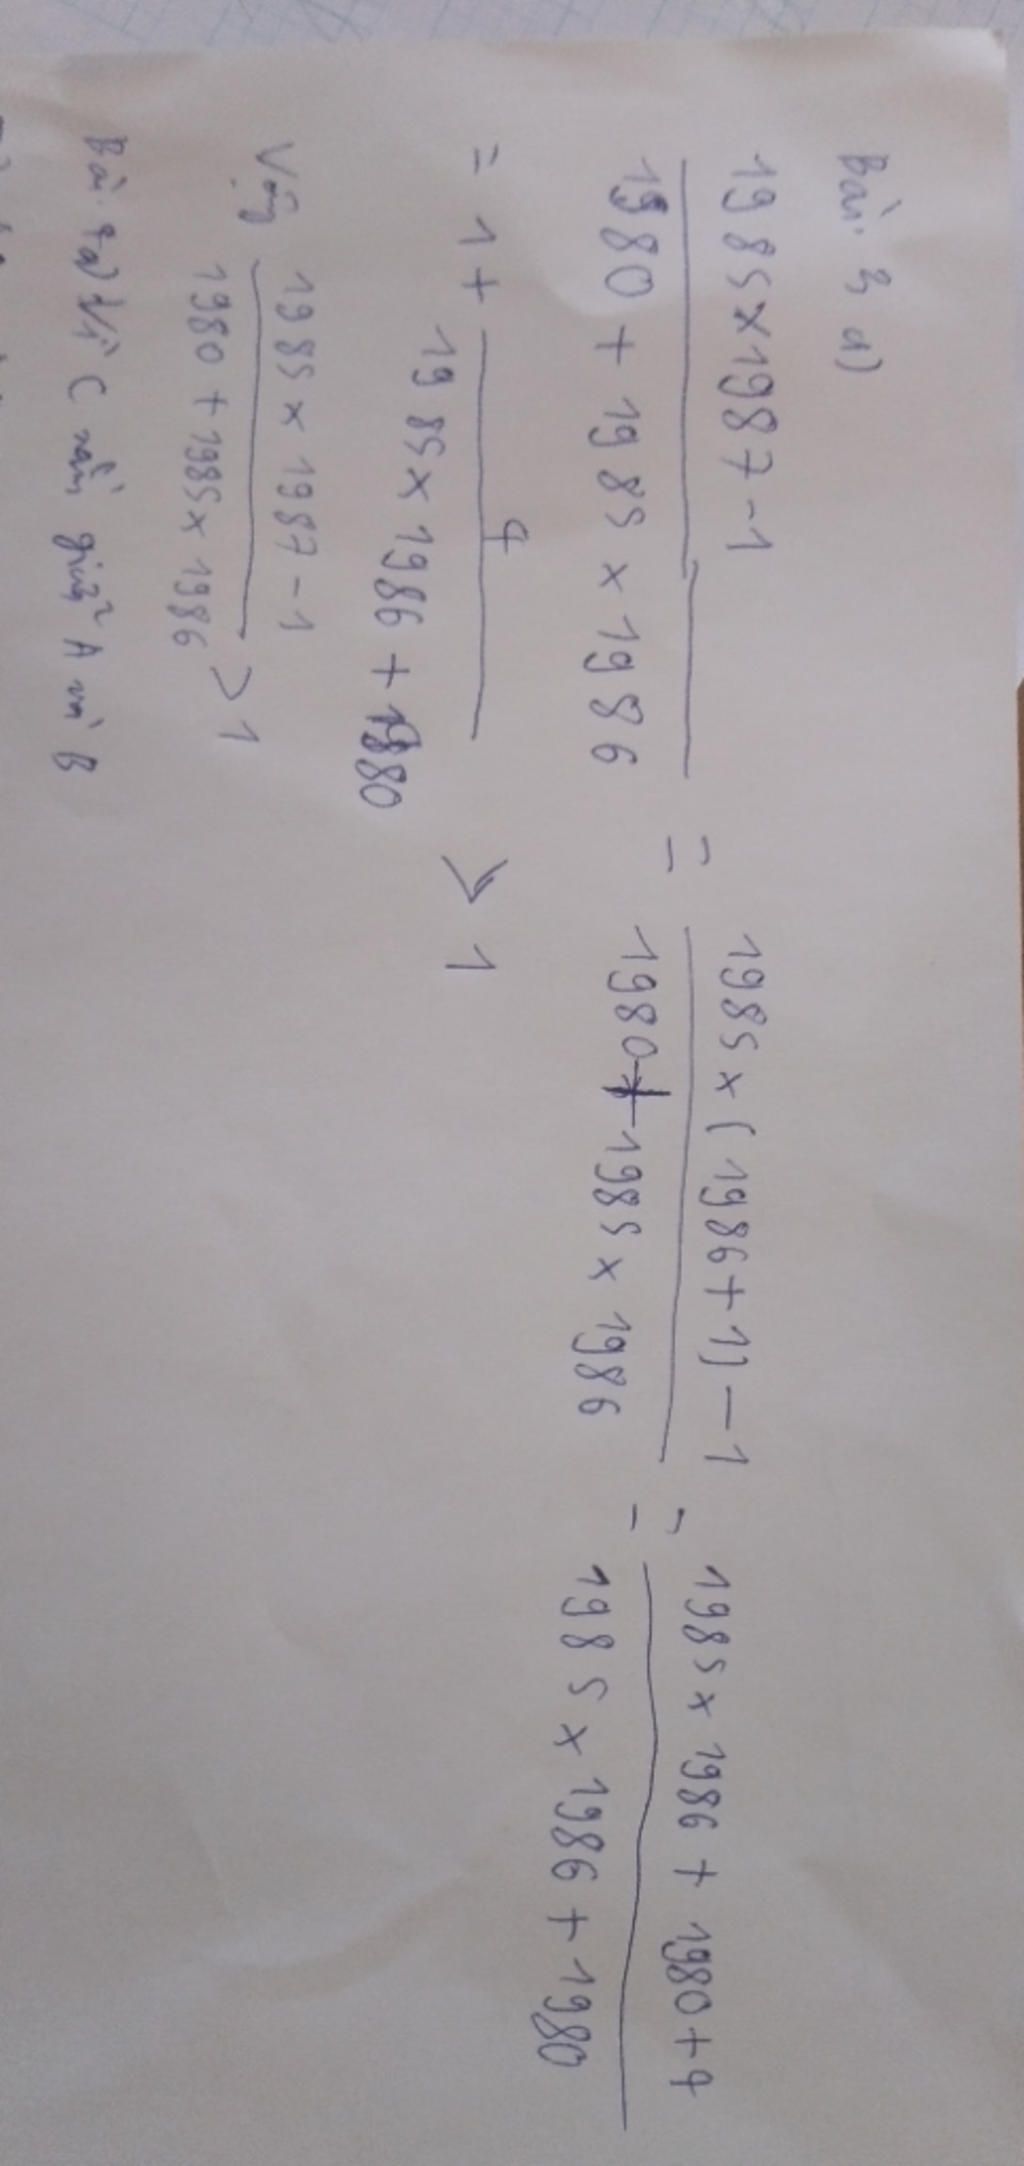 Bài 3 a)
1985 x 1987 - 1 / 1980 + 1985 x 1986 = 1985 x ( 1986 + 1) - 1 / 1980 + 1985 x 1986 = 1985 x 1986 + 1980 + 4 / 1985 x 1986 + 1980
= 1 + 4 / 1985 x 1986 + 1980 > 1
Vậy 1985 x 1987 - 1 / 1980 + 1985 x 1986 > 1
Bài 4 a) Vì C nằm giữa A và B